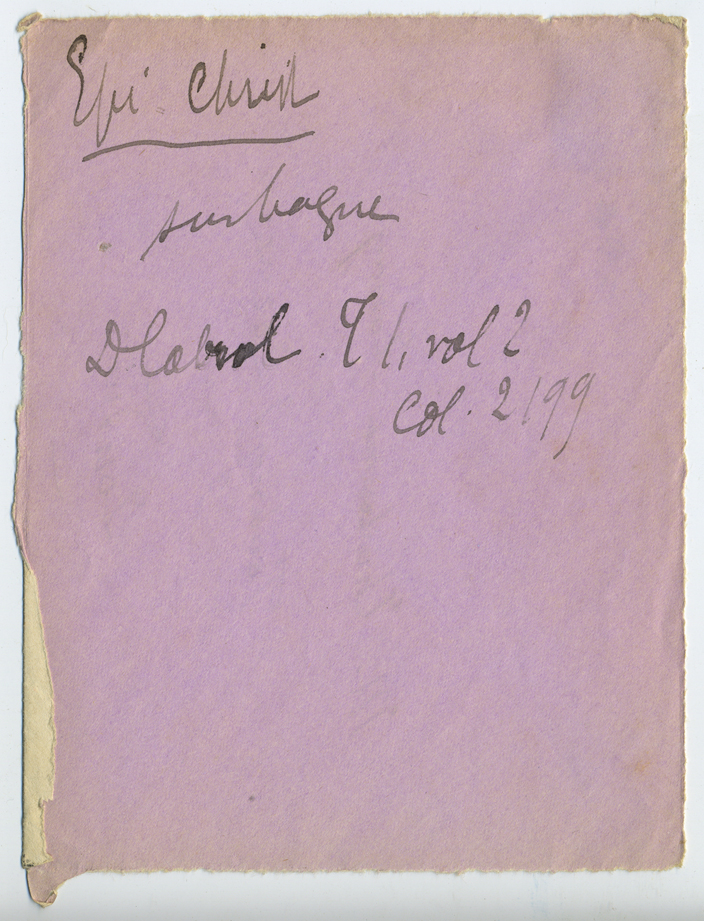 Epi Christ
sur bague
D Cabrol. T 1, vol 2
Col. 2199